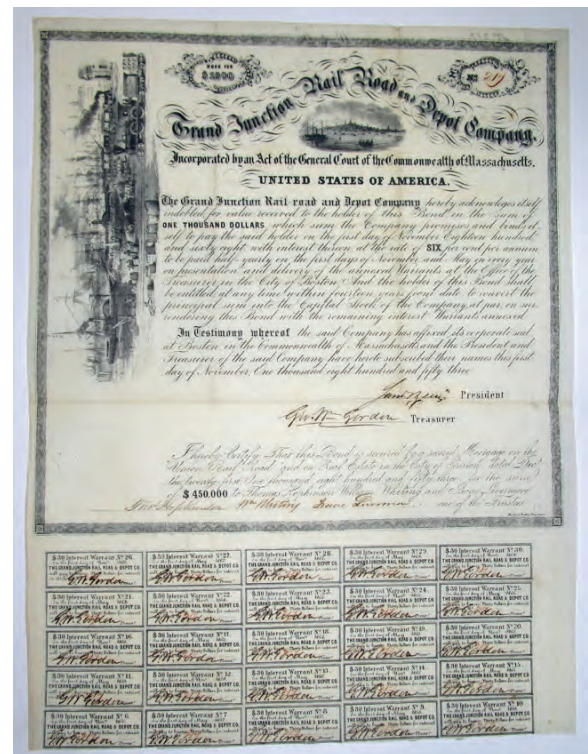 BOND FOR
$1000
No. 219
Grand Junction Rail Road and Depot Company.
Incorporated by an Act of the General Court of the Commonwealth of Massachusetts.
UNITED STATES OF AMERICA.
The Grand Junction Rail-road and Depot Company hereby acknowleges itself
indebted for value received to the holder of this Bond in the sum of
ONE THOUSAND DOLLARS which sum the Company promises and binds it-
self to pay the said holder on the first day of November Eighteen hundred
and sixty eight with interest thereon at the rate of SIX per cent per annum
to be paid half yearly on the first days of November and May in every year
on presentation and delivery of the annexed Warrants at the Office of the
Treasurer in the City of Boston. And the holder of this Bond shall
be entitled at any time within fourteen years from date to convert the
principal sum into the Capital Stock of the Company at par on sur-
rendering this Bond with the remaining interest Warrants annexed
In Testimony whereof the said Company has affixed its corporate seal
at Boston in the Commonwealth of Massachusetts and the President and
Treasurer of the said Company have hereto subscribed their names this first
day of November, One thousand eight hundred and fifty three
President
Geo. Wm Gordon Treasurer
I hereby Certify That this Bond is secured by a second Mortgage on the
Road and on Real Estate in the City of Boston dated Dec
the twenty first One thousand eight hundred and fifty three for the sum
of $450.000 to Thomas Hopkinson William Whiting and Isaac Livermore
Thos Hopkinson Wm Whiting Isaac Livermore one of the Trustees
$30 Interest Warrant No 26.
THE GRAND JUNCTION RAIL ROAD & DEPOT CO.
G W Gordon
$30 Interest Warrant No 27.
THE GRAND JUNCTION RAIL ROAD & DEPOT CO.
G W Gordon
$30 Interest Warrant No 28.
THE GRAND JUNCTION RAIL ROAD & DEPOT CO.
G W Gordon
$30 Interest Warrant No 29.
THE GRAND JUNCTION RAIL ROAD & DEPOT CO.
G W Gordon
$30 Interest Warrant No 30.
THE GRAND JUNCTION RAIL ROAD & DEPOT CO.
G W Gordon
$30 Interest Warrant No 21.
THE GRAND JUNCTION RAIL ROAD & DEPOT CO.
G W Gordon
$30 Interest Warrant No 22.
THE GRAND JUNCTION RAIL ROAD & DEPOT CO.
G W Gordon
$30 Interest Warrant No 23.
THE GRAND JUNCTION RAIL ROAD & DEPOT CO.
G W Gordon
$30 Interest Warrant No 24.
THE GRAND JUNCTION RAIL ROAD & DEPOT CO.
G W Gordon
$30 Interest Warrant No 25.
THE GRAND JUNCTION RAIL ROAD & DEPOT CO.
G W Gordon
$30 Interest Warrant No 16.
THE GRAND JUNCTION RAIL ROAD & DEPOT CO.
G W Gordon
$30 Interest Warrant No 17.
THE GRAND JUNCTION RAIL ROAD & DEPOT CO.
G W Gordon
$30 Interest Warrant No 18.
THE GRAND JUNCTION RAIL ROAD & DEPOT CO.
G W Gordon
$30 Interest Warrant No 19.
THE GRAND JUNCTION RAIL ROAD & DEPOT CO.
G W Gordon
$30 Interest Warrant No 20.
THE GRAND JUNCTION RAIL ROAD & DEPOT CO.
G W Gordon
$30 Interest Warrant No 11.
THE GRAND JUNCTION RAIL ROAD & DEPOT CO.
G W Gordon
$30 Interest Warrant No 12.
THE GRAND JUNCTION RAIL ROAD & DEPOT CO.
G W Gordon
$30 Interest Warrant No 13.
THE GRAND JUNCTION RAIL ROAD & DEPOT CO.
G W Gordon
$30 Interest Warrant No 14.
THE GRAND JUNCTION RAIL ROAD & DEPOT CO.
G W Gordon
$30 Interest Warrant No 15.
THE GRAND JUNCTION RAIL ROAD & DEPOT CO.
G W Gordon
$30 Interest Warrant No 6
THE GRAND JUNCTION RAIL ROAD & DEPOT CO.
G W Gordon
$30 Interest Warrant No 7
THE GRAND JUNCTION RAIL ROAD & DEPOT CO.
G W Gordon
$30 Interest Warrant No 8
THE GRAND JUNCTION RAIL ROAD & DEPOT CO.
G W Gordon
$30 Interest Warrant No 9.
THE GRAND JUNCTION RAIL ROAD & DEPOT CO.
G W Gordon
$30 Interest Warrant No 10
THE GRAND JUNCTION RAIL ROAD & DEPOT CO.
G W Gordon